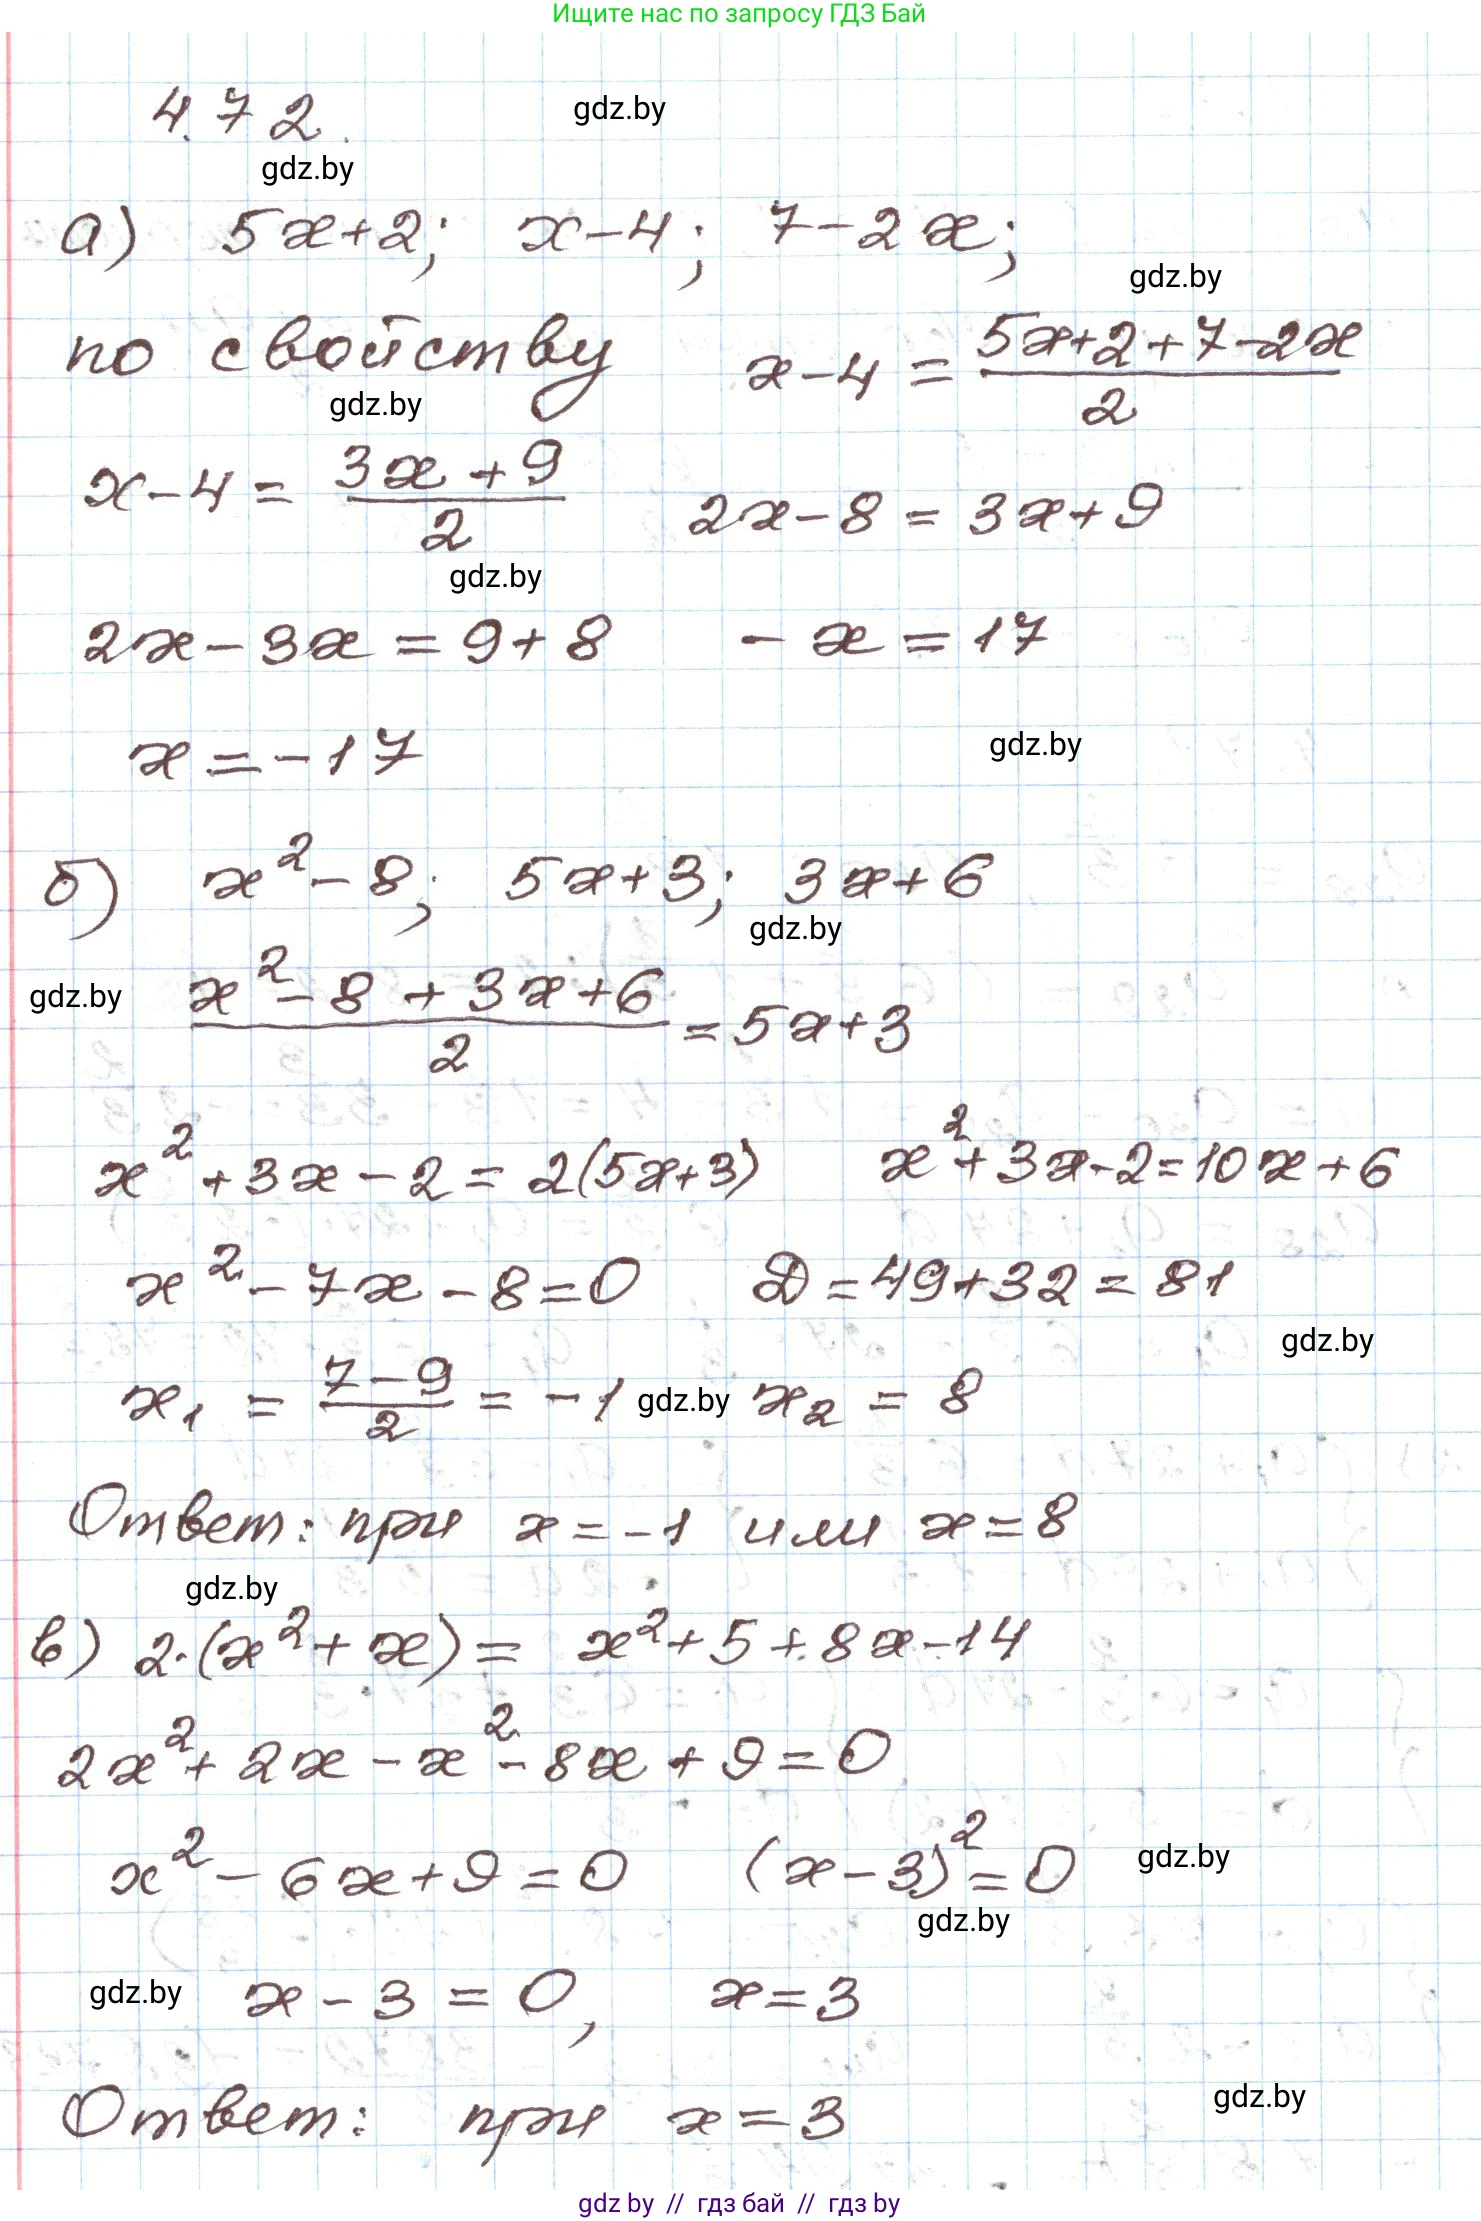 Ищите нас по запросу ГДЗ Бай
4.72.
gdz.by
gdz.by
а) 5x+2; x-4; 7-2x;
gdz.by
по свойству x-4 = (5x+2+7-2x)/2
gdz.by
x-4 = (3x+9)/2 2x-8 = 3x+9
gdz.by
2x-3x = 9+8 -x = 17
x = -17
gdz.by
б) x²-8; 5x+3; 3x+6
gdz.by
gdz.by
(x²-8+3x+6)/2 = 5x+3
x²+3x-2 = 2(5x+3) x²+3x-2=10x+6
x²-7x-8=0 D=49+32=81
gdz.by
x₁ = (7-9)/2 = -1 gdz.by x₂ = 8
Ответ: при x=-1 или x=8
gdz.by
в) 2·(x²+x) = x²+5+8x-14
2x²+2x-x²-8x+9=0
x²-6x+9=0 (x-3)²=0 gdz.by
gdz.by
gdz.by x-3=0, x=3
Ответ: при x=3
gdz.by
gdz by // гдз бай // гдз by